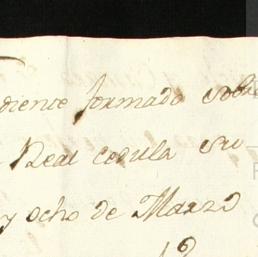 diente formado sobre
Real cedula su
y ocho de Marzo